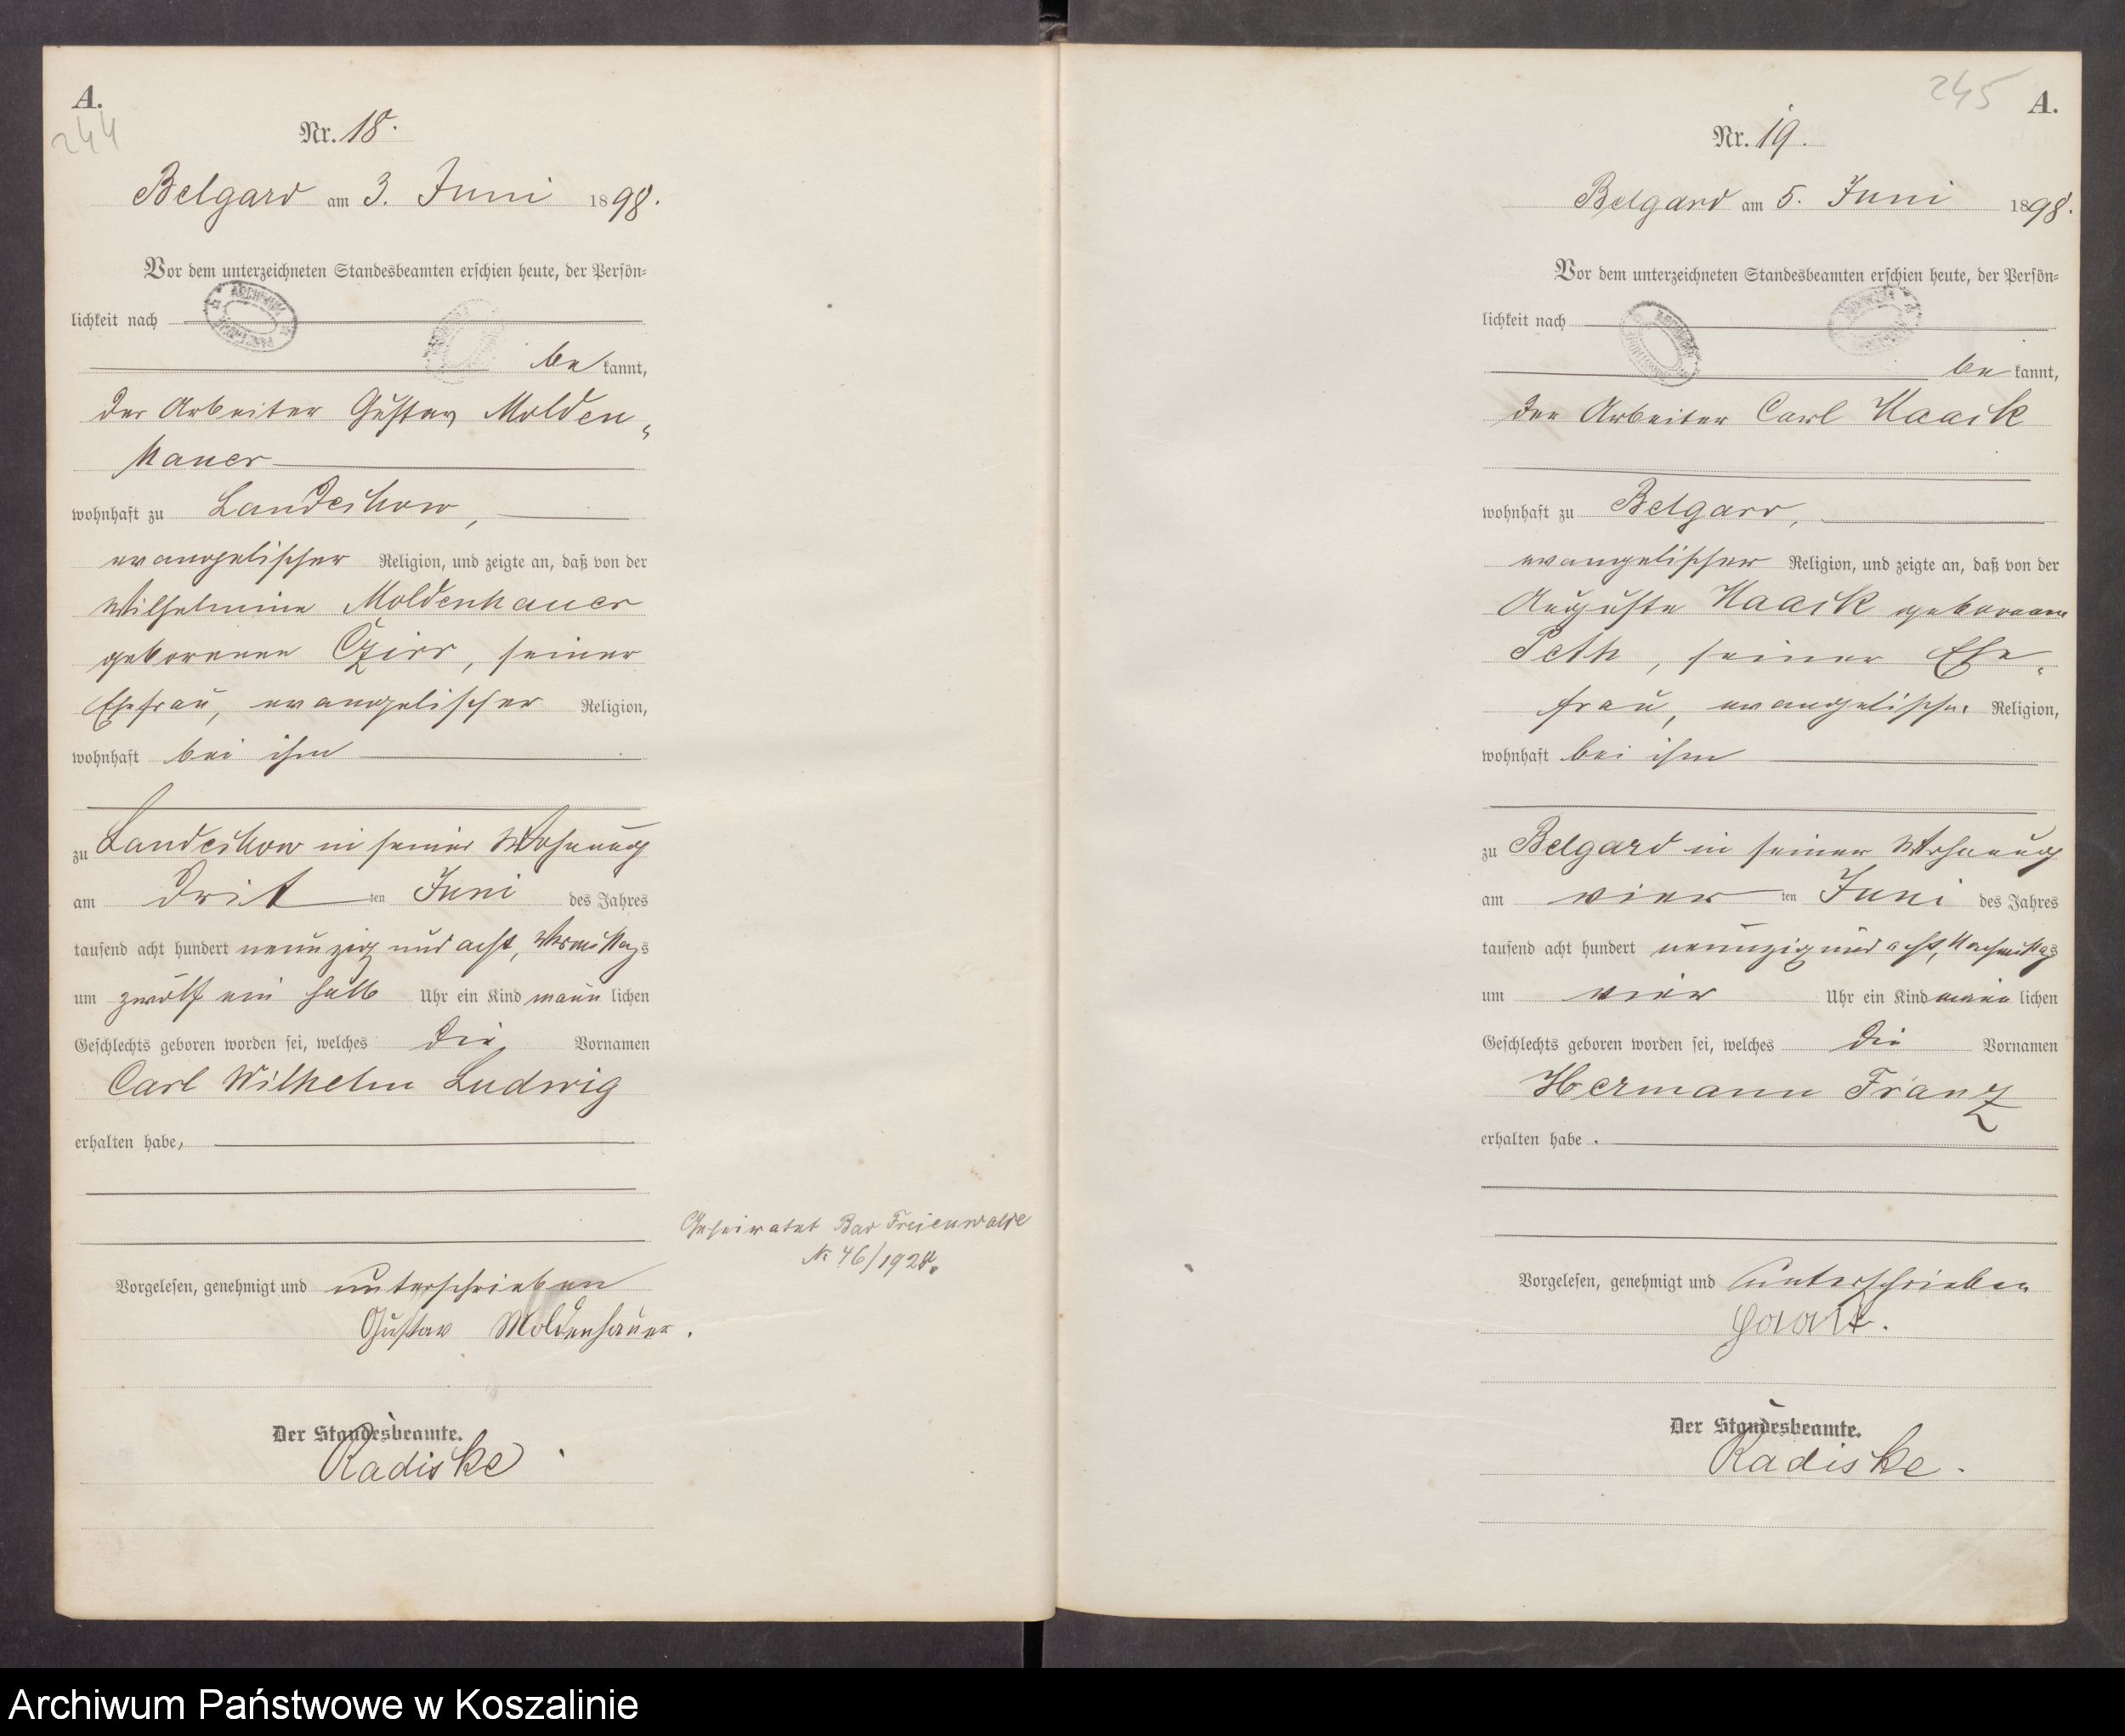 A.
244
Nr. 18.
Belgard am 3. Juni 1898.
Vor dem unterzeichneten Standesbeamten erschien heute, der Persön-
lichkeit nach
be kannt,
der Arbeiter Gustav Molden-
hauer
wohnhaft zu Landechow,
evangelischer Religion, und zeigte an, daß von der
Wilhelmine Moldenhauer
geborenen, seiner
Ehefrau, evangelischer Religion,
wohnhaft bei ihm
zu Landechow in seiner Wohnung
am dritten Juni des Jahres
tausend acht hundert neunzig und acht, Vormittags
um zwölf ein halb Uhr ein Kind männlichen
Geschlechts geboren worden sei, welches die Vornamen
Carl Wilhelm Ludwig
erhalten habe,
Geheiratet Bad Freienwalde
№ 46/1928.
Vorgelesen, genehmigt und unterschrieben
Gustav Moldenhauer.
Der Standesbeamte.
Radiske
245
A.
Nr. 19.
Belgard am 5. Juni 1898.
Vor dem unterzeichneten Standesbeamten erschien heute, der Persön-
lichkeit nach
be kannt,
der Arbeiter Carl Haack
wohnhaft zu Belgard,
evangelischer Religion, und zeigte an, daß von der
Auguste Haack geborenen
Peth, seiner Ehe-
frau, evangelischer Religion,
wohnhaft bei ihm
zu Belgard in seiner Wohnung
am vierten Juni des Jahres
tausend acht hundert neunzig und acht, Nachmittags
um vier Uhr ein Kind männlichen
Geschlechts geboren worden sei, welches die Vornamen
Hermann Franz
erhalten habe.
Vorgelesen, genehmigt und unterschrieben
Haack.
Der Standesbeamte.
Radiske.
Archiwum Państwowe w Koszalinie